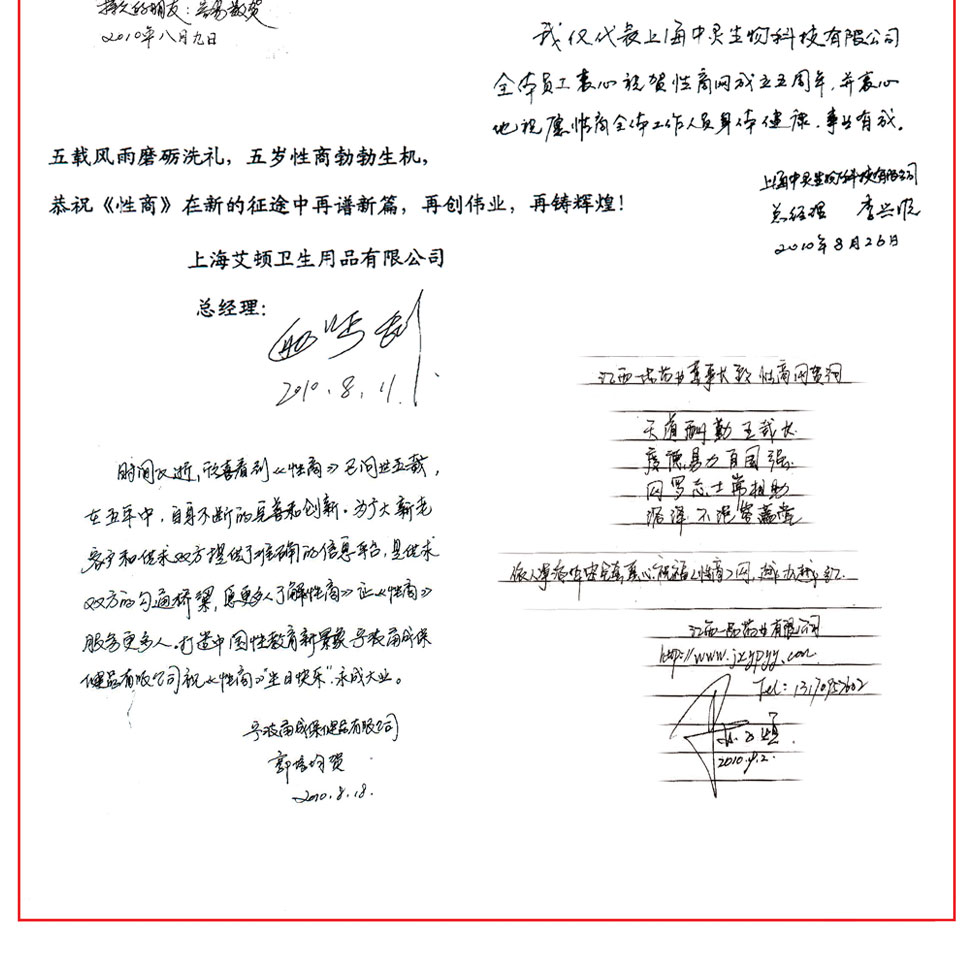 2010年八月九日
我仅代表上海中灵生物科技有限公司
全体员工衷心祝贺性商网成立五周年,并衷心
地祝愿性商全体工作人员身体健康,事业有成。
上海中灵生物科技有限公司
总经理 李兴
2010年8月26日
五载风雨磨砺洗礼,五岁性商勃勃生机,
恭祝《性商》在新的征途中再谱新篇,再创伟业,再铸辉煌!
上海艾顿卫生用品有限公司
总经理:
2010.8.11.
时间飞逝,欣喜看到《性商》已问世五载,
在五年中,自身不断的完善和创新。为广大新老
客户和供求双方提供了准确的信息平台,是供求
双方的勾通桥梁,愿更多人了解《性商》让《性商》
服务更多人。打造中国性教育新景象
保健品有限公司祝《性商》"生日快乐"永成大业。
保健品有限公司
贺
2010.8.18.
江西一品药业董事长 性商网贺词
天道酬勤五载长
厚德 自图强
网罗志士常相助
泽不
祝福《性商》网,越办越红.
江西一品药业有限公司
http://www.jxypyy.com
Tel: 13170957602
2010.9.2.